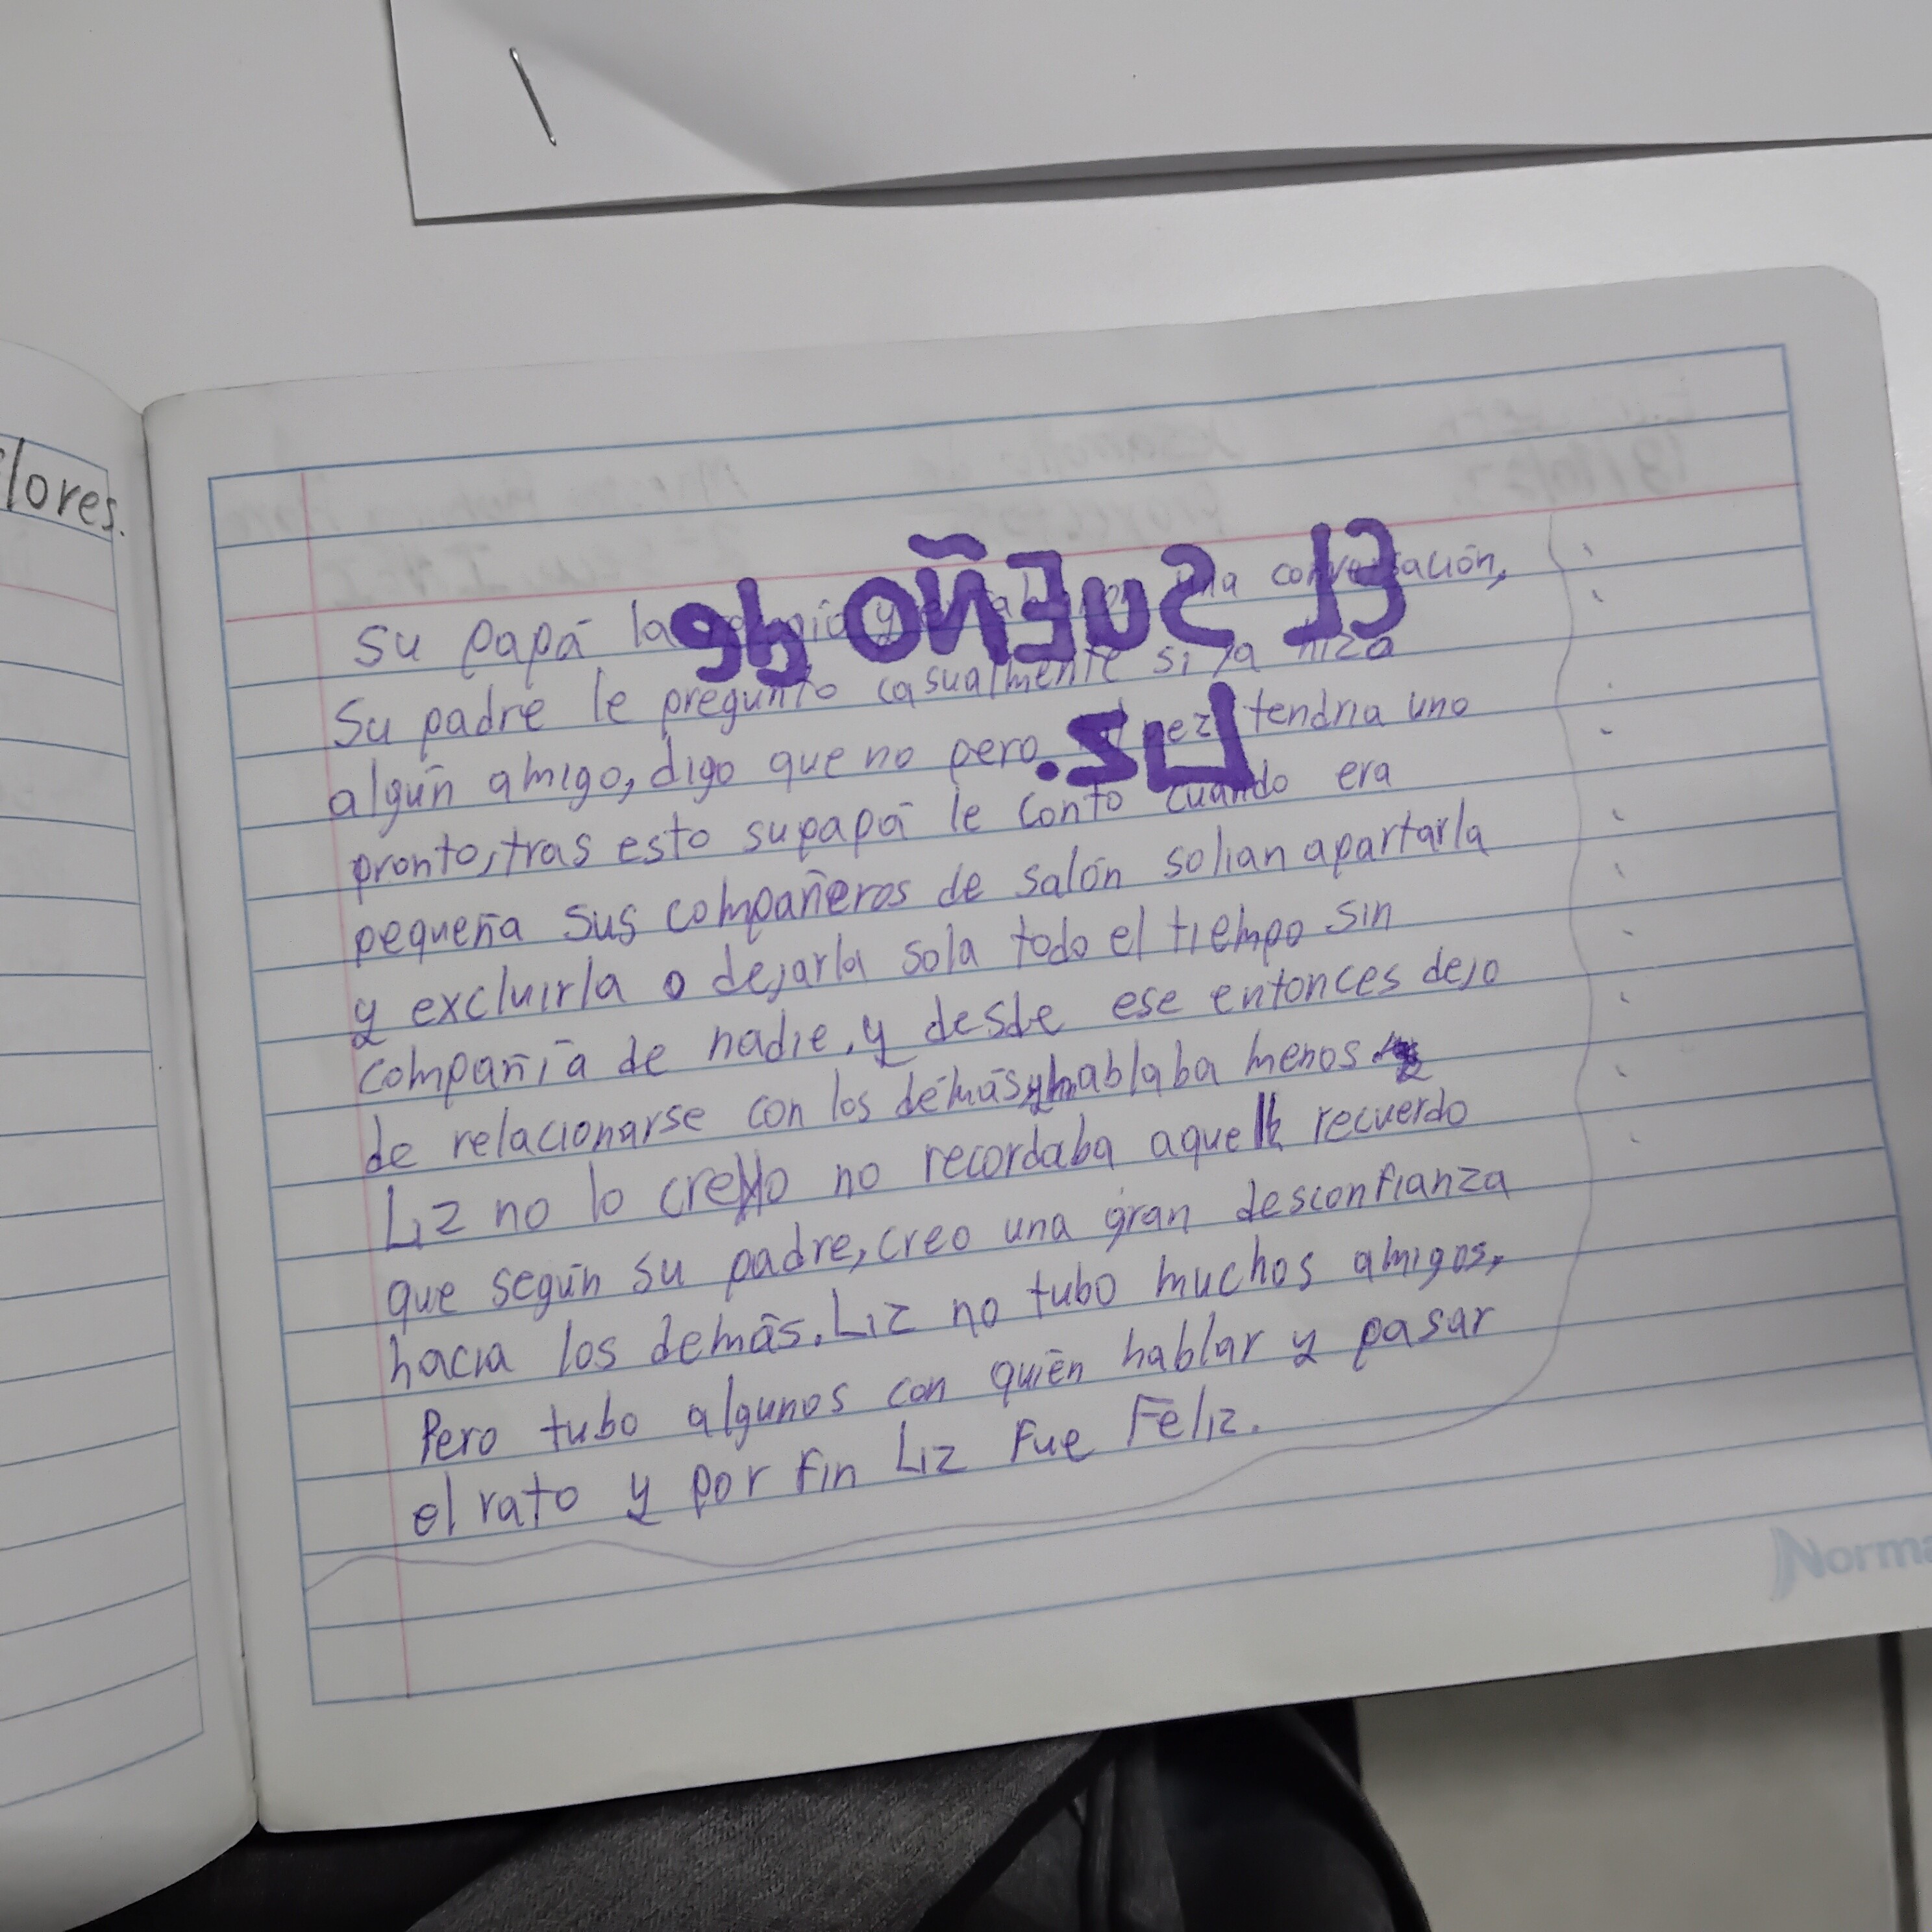 lores.
EL SUEÑO de
Liz.
su papá la y una conversación,
Su padre le pregunto casualmente si ya hizo
algún amigo, digo que no pero tendria uno
pronto, tras esto su papá le conto cuando era
pequeña sus compañeros de salón solian apartarla
y excluirla o dejarla sola todo el tiempo sin
compañia de nadie, y desde ese entonces dejo
de relacionarse con los demás y hablaba menos
Liz no lo creyo no recordaba aquel recuerdo
que según su padre, creo una gran desconfianza
hacia los demás. Liz no tubo muchos amigos,
Pero tubo algunos con quién hablar y pasar
el rato y por fin Liz fue Feliz.
Norma